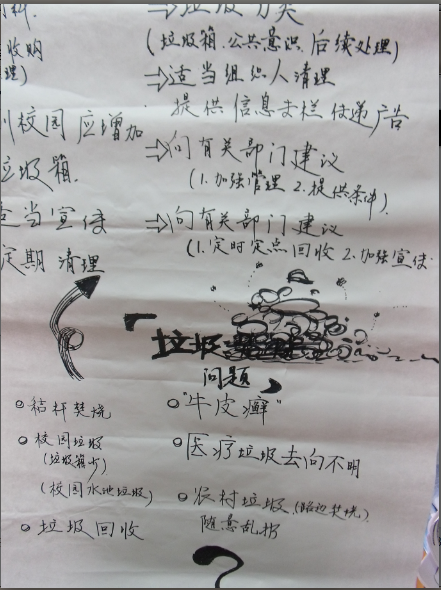 ⇒垃圾分类
收购
理)
(垃圾箱.公共意识.后续处理)
⇒适当组织人清理
提供信息专栏 传递广告
校园应增加
垃圾箱.
⇒向有关部门建议
(1.加强管理 2.提供条件)
适当宣传
定期 清理
⇒向有关部门建议
(1.定时定点回收 2.加强宣传
垃圾
问题
秸杆焚烧
校园垃圾
(垃圾箱少)
(校园水池垃圾)
垃圾回收
"牛皮癣"
医疗垃圾去向不明
农村垃圾(路边焚烧)
随意乱扔
?